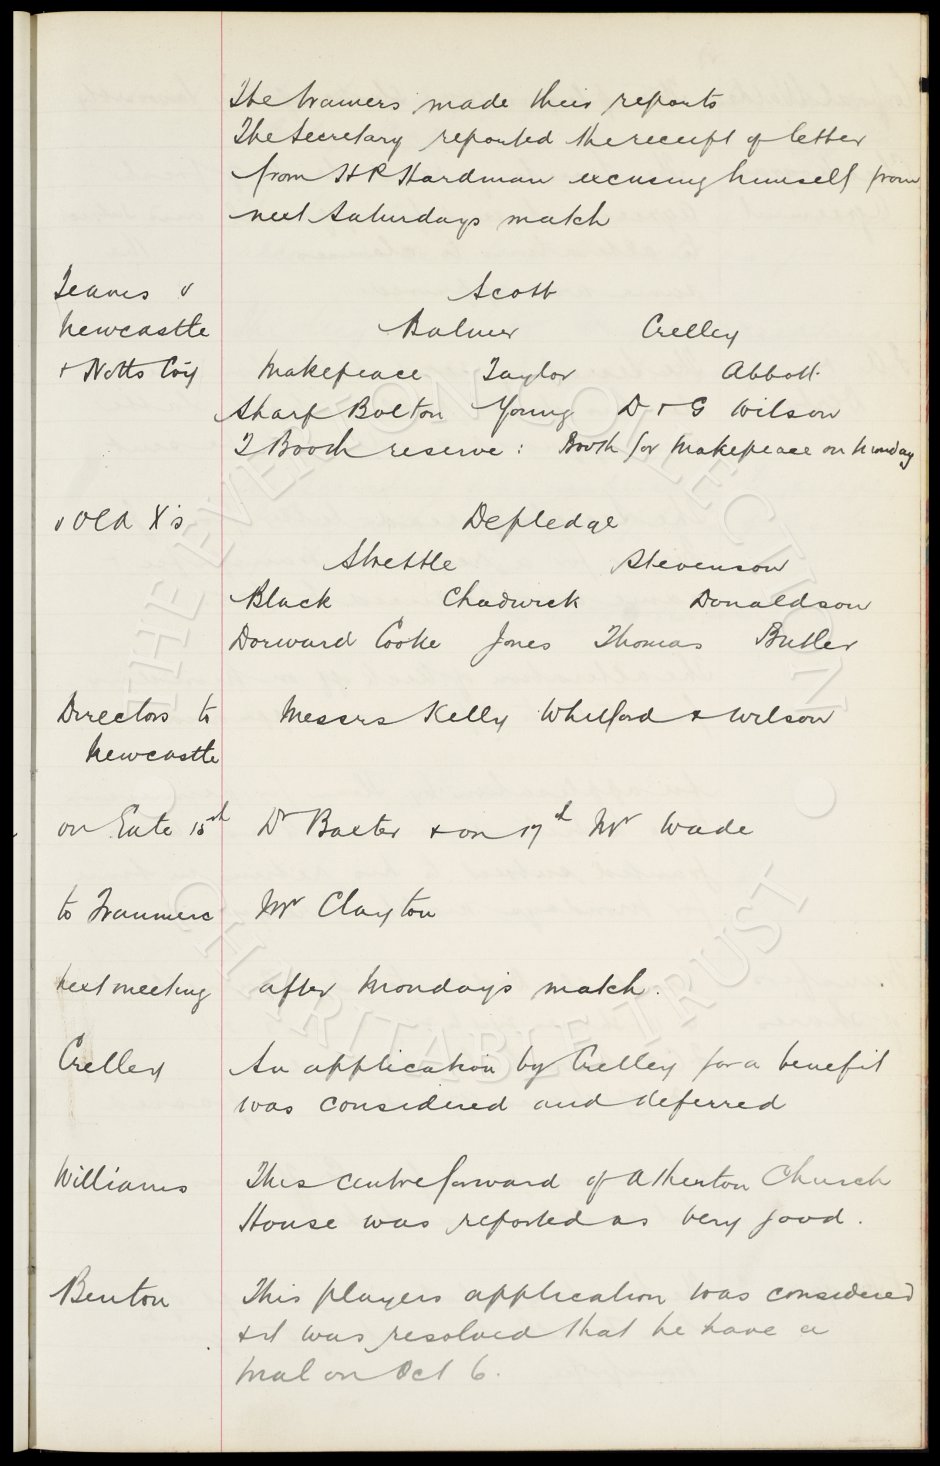 The trainers made their reports
The Secretary reported the receipt of letter
from H P Hardman excusing himself from
next Saturdays match
Teams v Scott
Newcastle Balmer Crelley
+ Notts Coy Makepeace Taylor Abbott
Sharp Bolton Young D + G Wilson
T Booth reserve : Booth for Makepeace on Monday
v Old X's Depledge
Strettle Stevenson
Black Chadwick Donaldson
Dorward Cooke Jones Thomas Butler
Directors to Messrs Kelly Whitford & Wilson
Newcastle
on Gate 15th Dr Baxter & on 17th Mr Wade
to Tranmere Mr Clayton
Next meeting after Mondays match.
Crelley An application by Crelley for a benefit
was considered and deferred
Williams This centre forward of Atherton Church
House was reported as very good.
Benton This players application was considered
& it was resolved that he have a
trial on Oct 6.
THE EVERTON COLLECTION
CHARITABLE TRUST